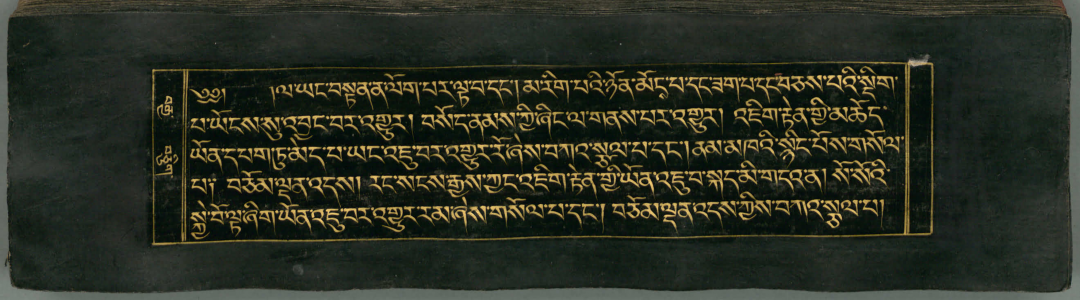 ༄༅། །ལ་ཡང་བསྟན་ན་ལོག་པར་ལྟ་བ་དང་། མ་རིག་པའི་ཉོན་མོངས་པ་དང་ཟག་པ་དང་བཅས་པའི་སྡིག་
པ་ཡོངས་སུ་འབྱང་བར་འགྱུར། བསོད་ནམས་ཀྱི་ཞིང་ལ་གནས་པར་འགྱུར། འཇིག་རྟེན་གྱི་མ་ཆོད་
ཡོན་དཔག་ཏུ་མེད་པ་ཡང་འཇུ་བར་འགྱུར་རོ་ཞེས་བཀའ་སྩལ་པ་དང་། ནམ་མཁའི་སྙིང་པོས་གསོལ་
པ། བཅོམ་ལྡན་འདས། རང་སངས་རྒྱས་ཀྱང་འཇིག་རྟེན་གྱི་ཡོན་འཇུ་བ་སྐད་མི་གདའ་ན། སོ་སོའི་
སྐྱེ་བོ་ལྟ་ཞིག་ཡོན་འཇུ་བར་འགྱུར་རམ་ཞེས་གསོལ་པ་དང་། བཅོམ་ལྡན་འདས་ཀྱིས་བཀའ་སྩལ་པ།